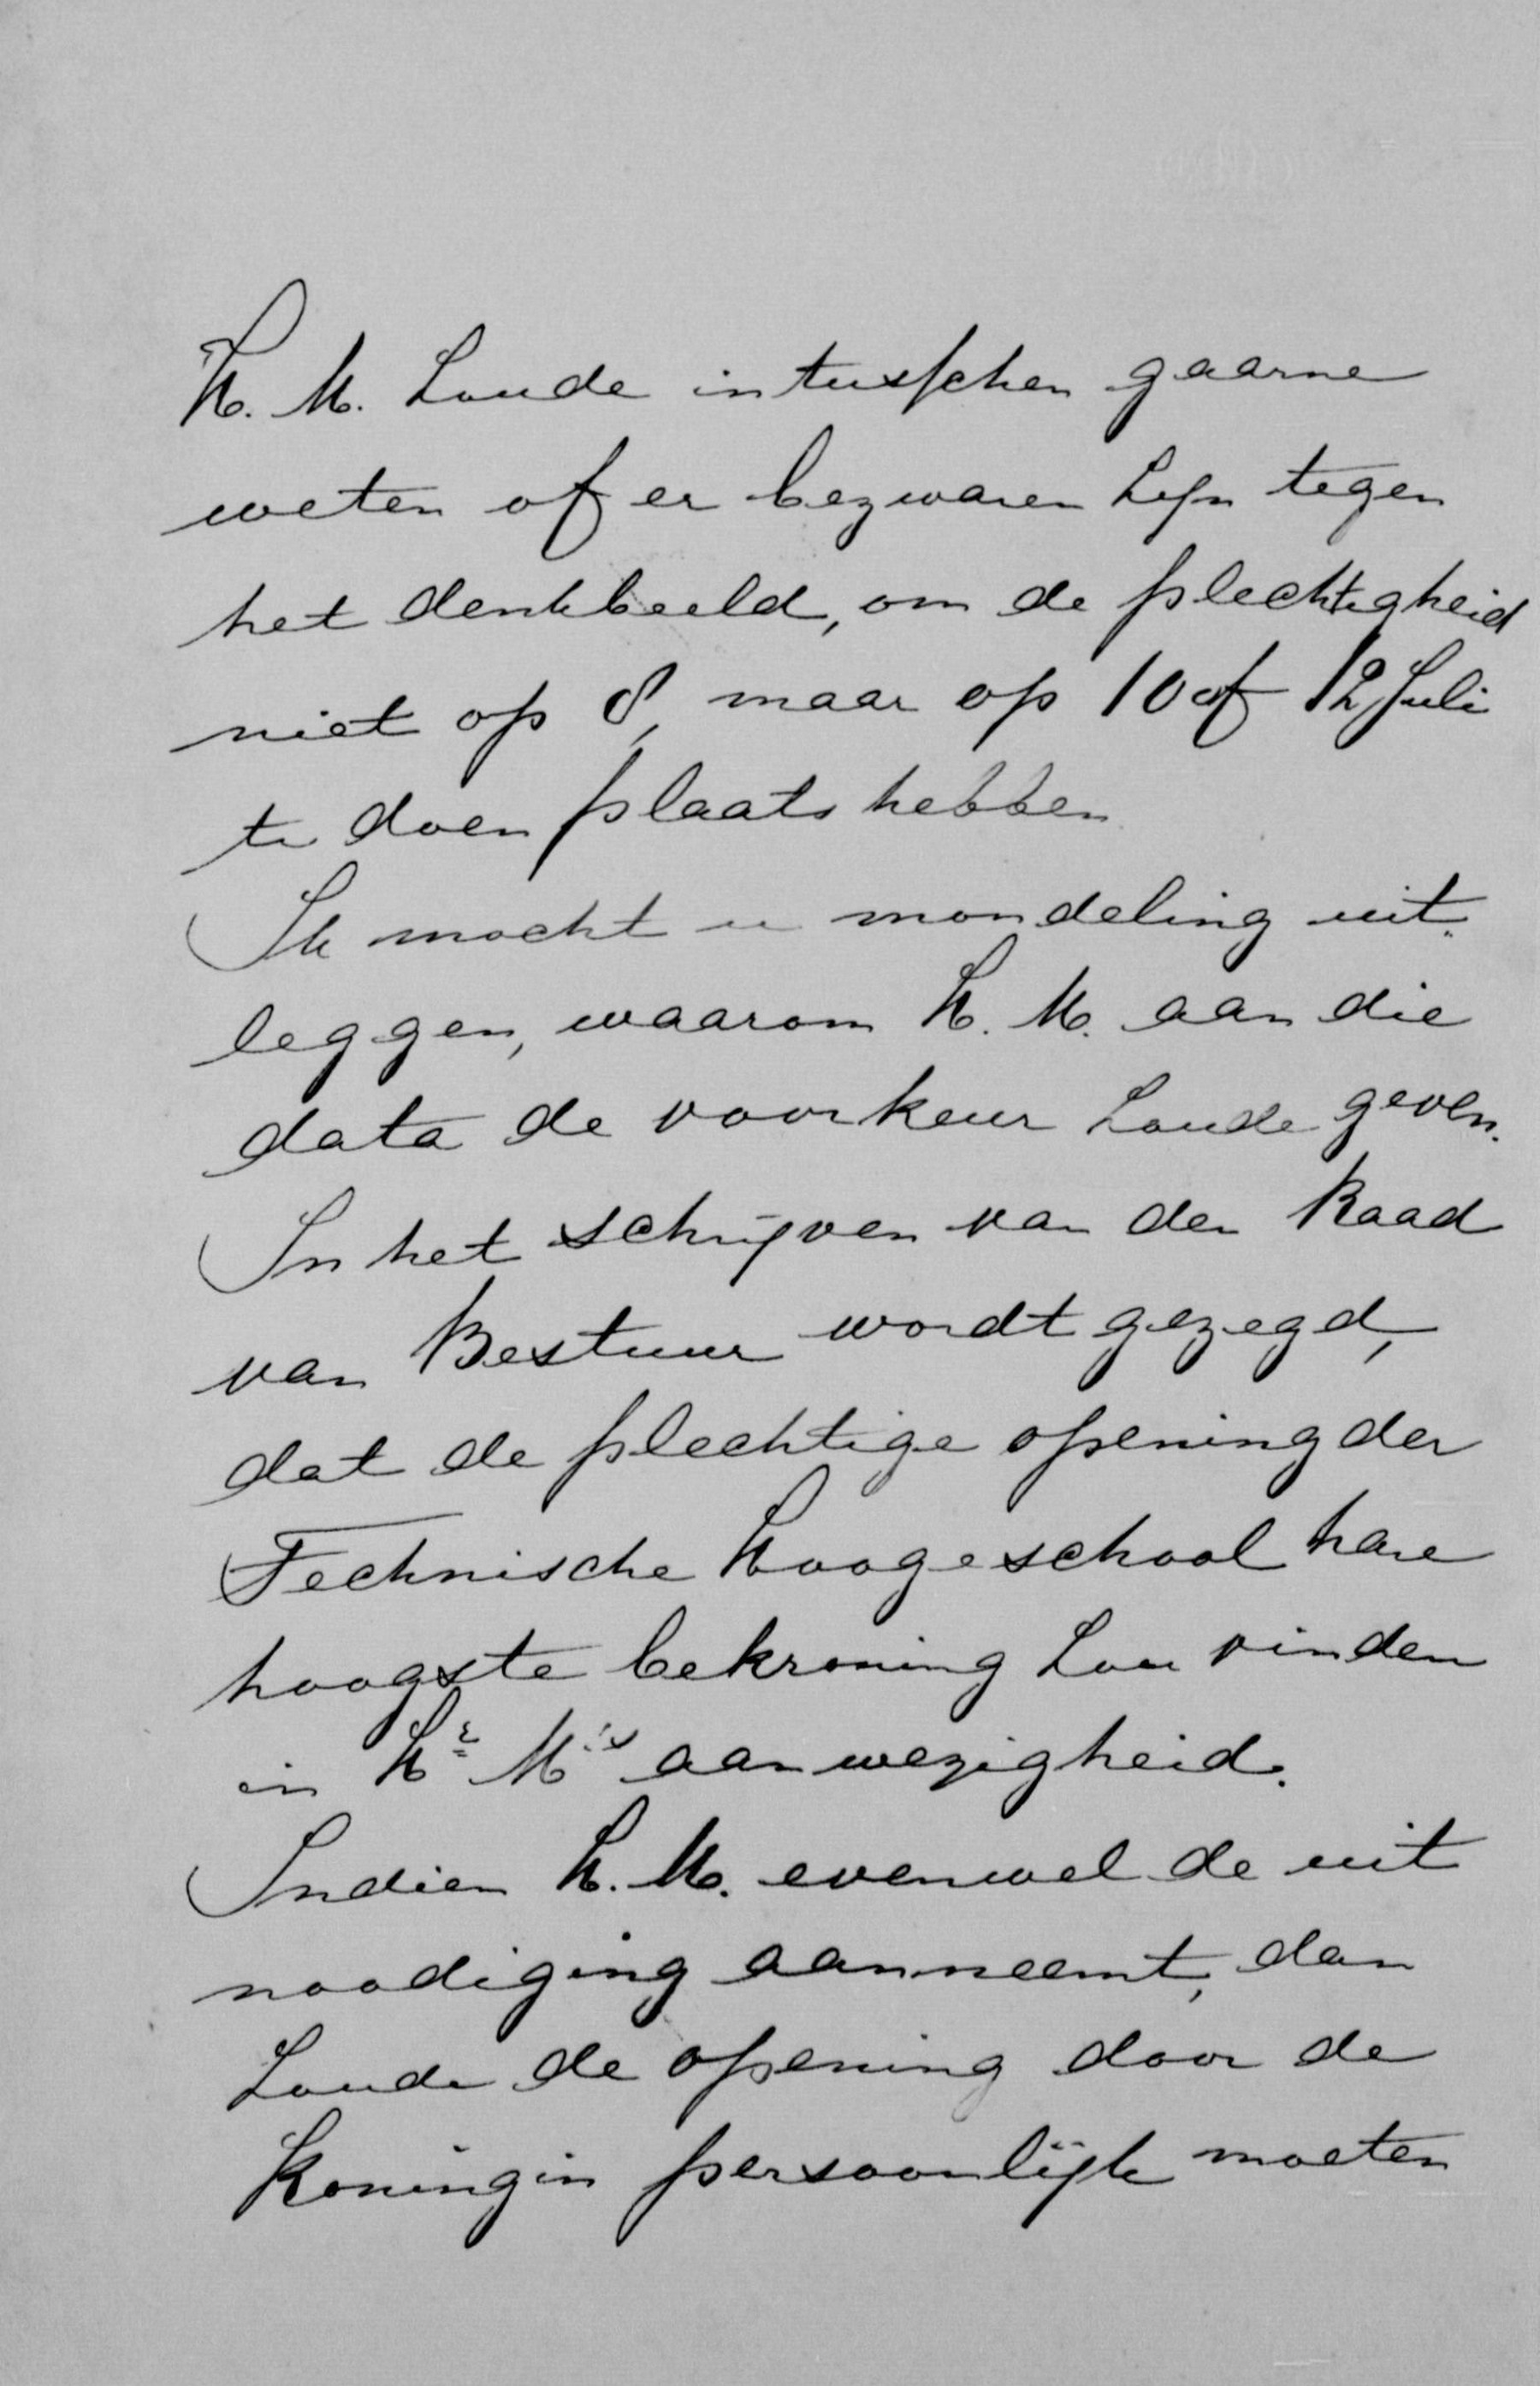 H. M. zoude intusschen gaarne
weten of er bezwaren zijn tegen
het denkbeeld, om de plechtigheid
niet op 8, maar op 10 of 12 Juli
te doen plaats hebben
Ik mocht u mondeling uit„
leggen, waarom H. M. aan die
data de voorkeur zoude geven.
In het schrijven van den Raad
van Bestuur wordt gezegd,
dat de plechtige opening der
Technische Hoogeschool hare
hoogste bekroning zou vinden
in Hr Ms aanwezigheid.
Indien H. M. evenwel de uit
noodiging aanneemt, dan
zoude de opening door de
Koningin persoonlijk moeten